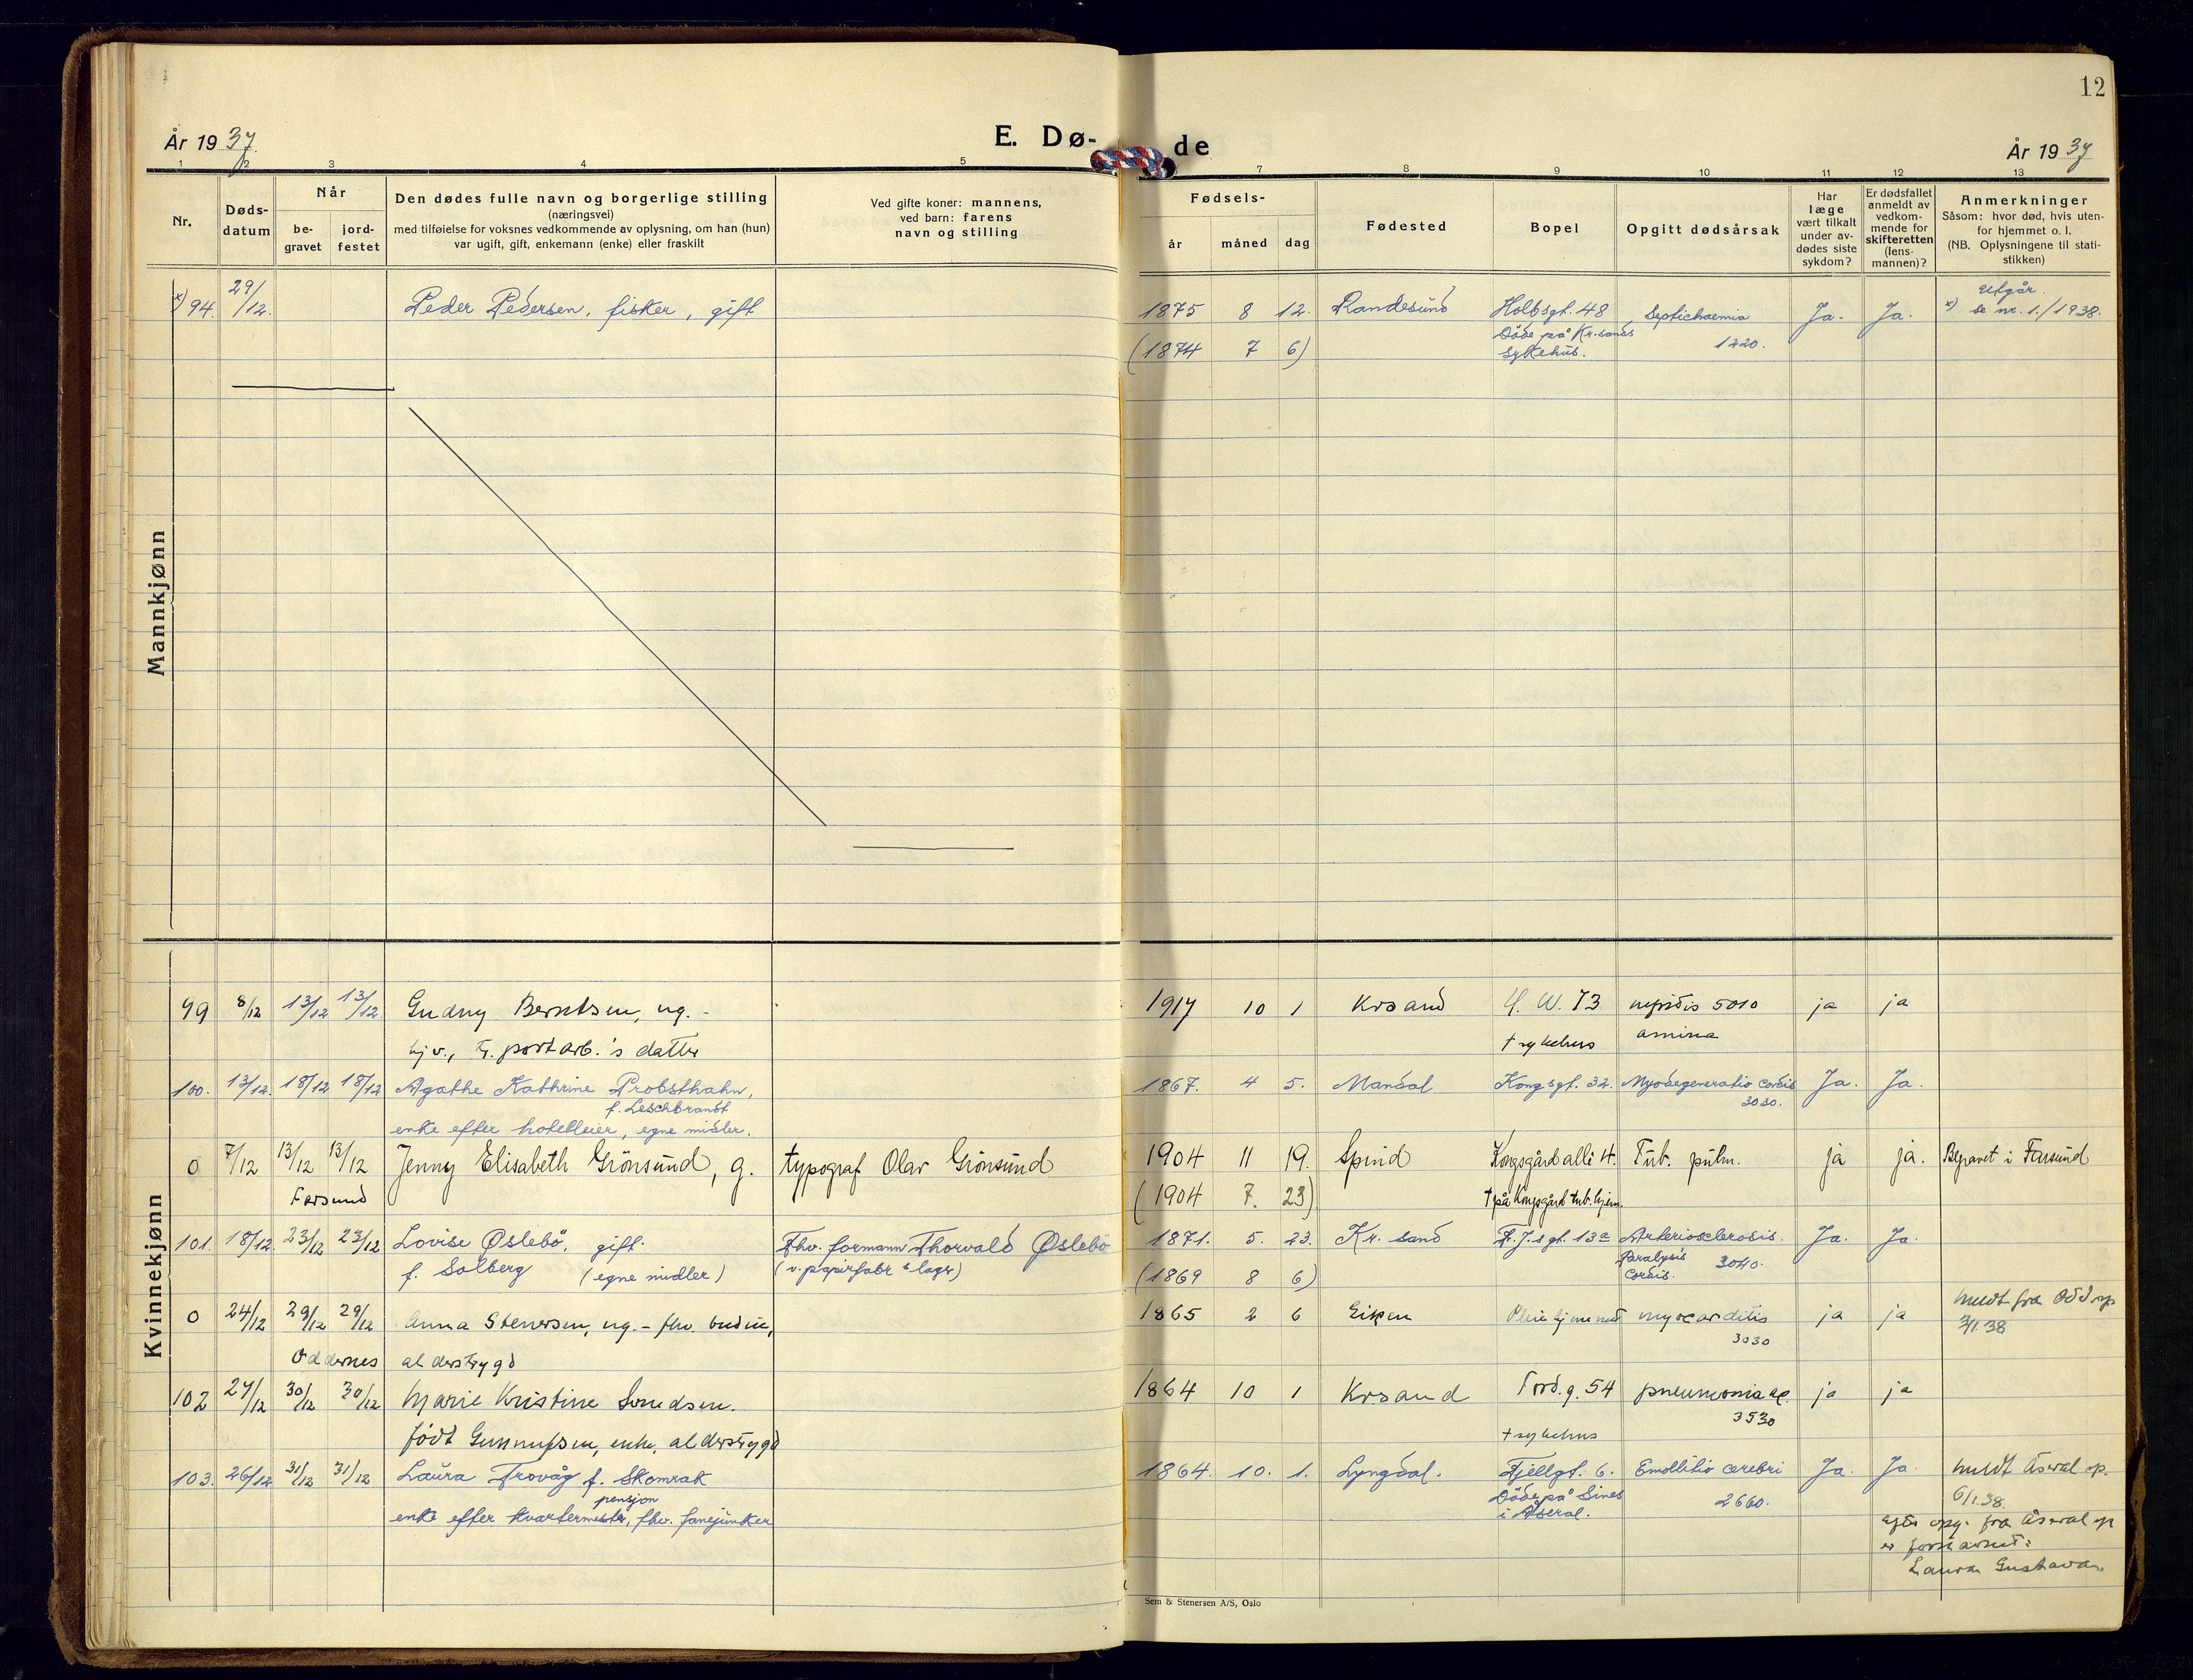 12
År 1937.
E. Dø-
de
År 1937
1 2 3 4 5 7 8 9 10 11 12 13
Nr.
Døds-
datum
Når
be-
gravet
jord-
festet
Den dødes fulle navn og borgerlige stilling
(næringsvei)
med tilføielse for voksnes vedkommende av oplysning, om han (hun)
var ugift, gift, enkemann (enke) eller fraskilt
Ved gifte koner: mannens,
ved barn: farens
navn og stilling
Fødsels-
år måned dag
Fødested
Bopel
Opgitt dødsårsak
Har
læge
vært tilkalt
under av-
dødes siste
sykdom?
Er dødsfallet
anmeldt av
vedkom-
mende for
skifteretten
(lens-
mannen)?
Anmerkninger
Såsom: hvor død, hvis uten-
for hjemmet o. l.
(NB. Oplysningene til stati-
stikken)
Mannkjønn
x) 94. 29/12. Peder Pedersen, fisker, gift 1875 8 12. Randesund Holbsgt. 48 Septichaemia Ja. Ja. Utgår.
x) se nr. 1./1938.
(1874 7 6) Döde på Kr.sands 1220.
Sykehus.
Kvinnekjønn
99 8/12 13/12 13/12. Gudny Berntsen, ug. 1917 10 1 Krsand H. W. 73 5010 ja ja
datter † sykehus
100. 13/12. 18/12 18/12 Agathe Kathrine Probsthahn, 1867. 4 5. Mandal Kongsgt. 32. Myodegeneratio cordis Ja. Ja.
f. Leschbrandt 3030.
enke efter hotelleier, egne midler.
0 7/12 13/12 13/12 Jenny Elisabeth Grönsund, g. typograf Olav Grönsund 1904 11 19. Spind Kongsgård allé 4. Tub. pulm. ja ja. Begravet i Farsund
Farsund (1904 7. 23) † på Kongsgård tub.hjem.
101. 18/12. 23/12 23/12 Lovise Øslebö, gift. Fhv. formann Thorvald Øslebö 1871. 5. 23. Kr. sand F. J.s gt. 13a Arteriosclerosis. Ja. Ja.
f. Solberg (egne midler) (v. papirfabr.s lager) (1869 8 6) Paralysis
cordis. 3040.
0 24/12 29/12 29/12 Anna Stenersen, ug. - fhv. budeie, 1865 2 6 Eiken Pleiehjemmet myocarditis ja ja meldt fra Odd. sp
3/1.38
Oddernes alderstrygd 3030
102 27/12 30/12 30/12 Marie Kristine Svendsen. 1864 10 1 Krsand Tord.g. 54 pneumonia ac. ja ja
3530
født Gunnufsen, enke, alderstrygd † sykehus
103. 26/12 31/12 31/12 Laura Trovåg f. Skomrak 1864. 10. 1. Lyngdal. Fjellgt. 6. Emollitio cerebri Ja. Ja. meldt Åseral sp.
6/1.38.
pensjon
enke efter kvartermester, fhv. fanejunker Döde på Sines 2660.
i Åseral.
efter opg. fra Åseral sp
er fornavnet:
Laura Gustava.
Sem & Stenersen A/S, Oslo